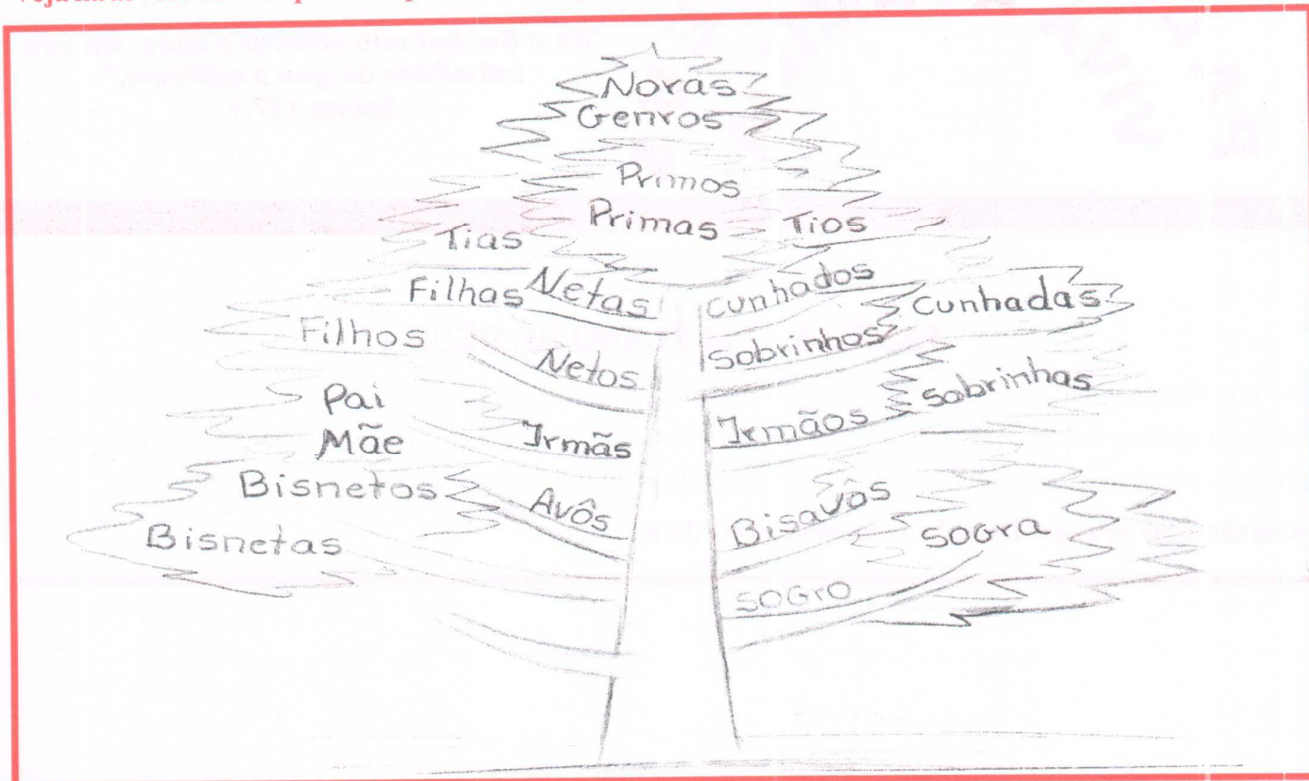 Noras
Genros
Primos
Primas
Tias
Tios
Filhas
Netas
Cunhados
Cunhadas
Filhos
Netos
Sobrinhos
Sobrinhas
Pai
Mãe
Irmãs
Irmãos
Bisnetos
Avôs
Bisavôs
SOGRA
Bisnetas
SOGRO